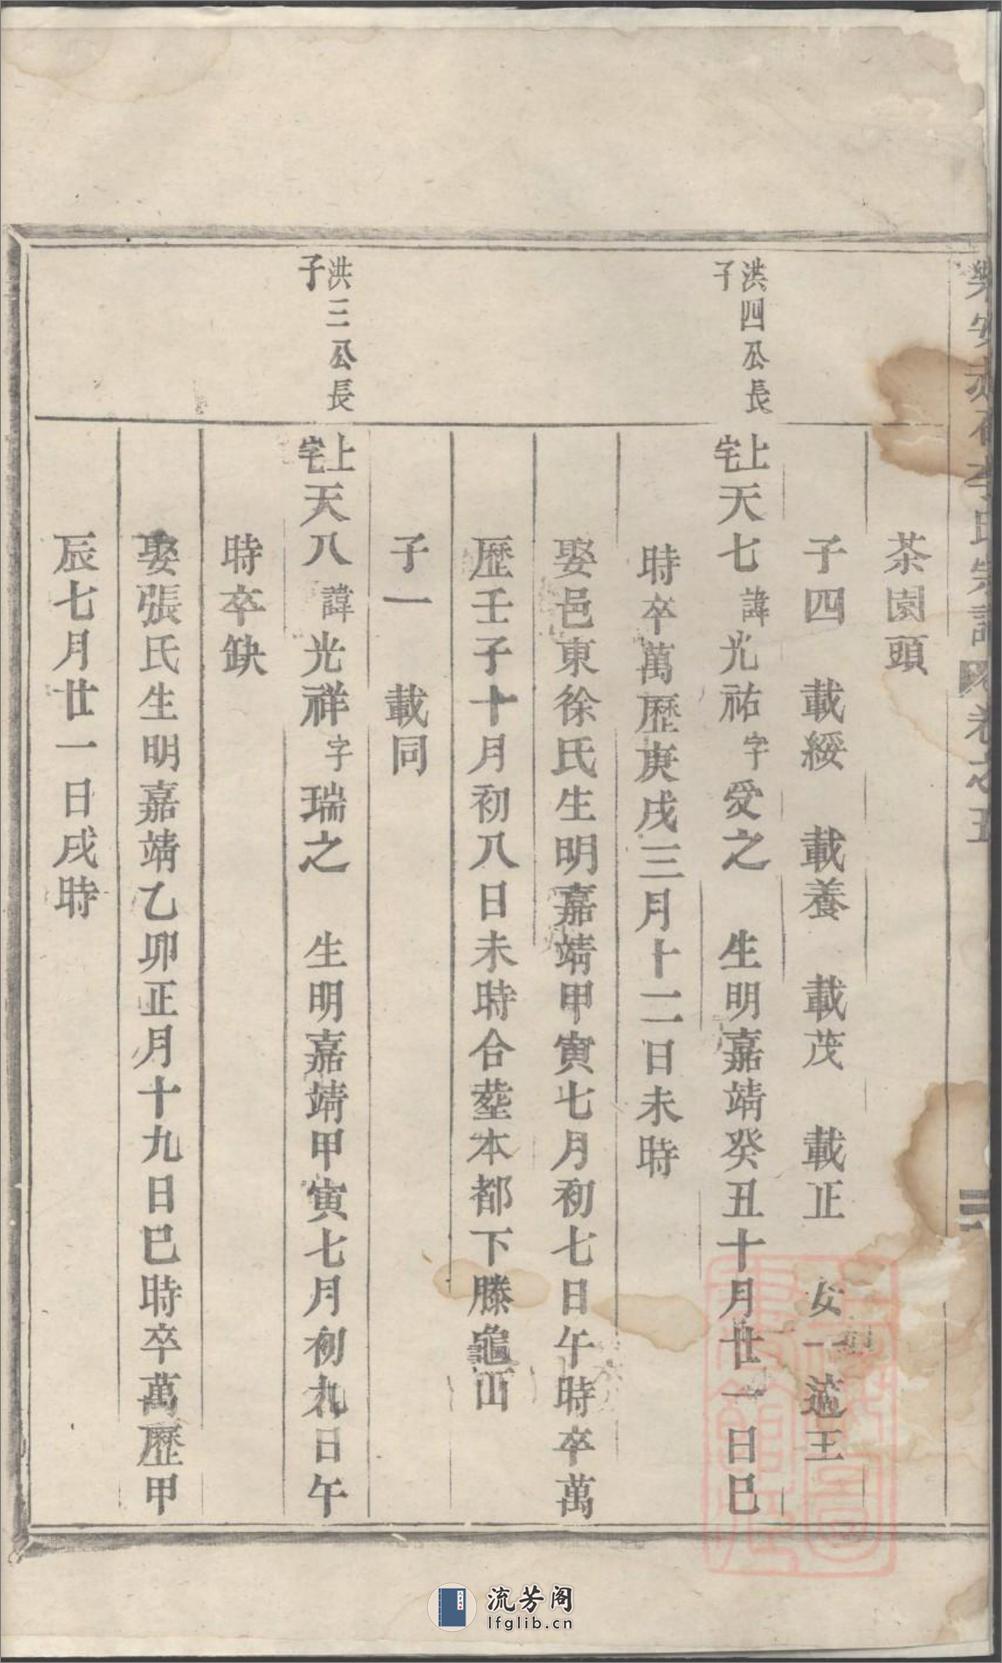 樂安
李氏宗譜
卷之五
茶園頭
子四　載綏　載養　載茂　載正　女一適王
洪四公長
子
上宅
天七諱光祐字愛之　生明嘉靖癸丑十月廿一日巳
時卒萬歷庚戌三月十二日未時
娶邑東徐氏生明嘉靖甲寅七月初七日午時卒萬
歷壬子十月初八日未時合塟本都下滕龜山
子一　載同
洪三公長
子
上宅
天八諱光祥字瑞之　生明嘉靖甲寅七月初九日午
時卒缺
娶張氏生明嘉靖乙卯正月十九日巳時卒萬歷甲
辰七月廿一日戌時
流芳阁
lfglib.cn